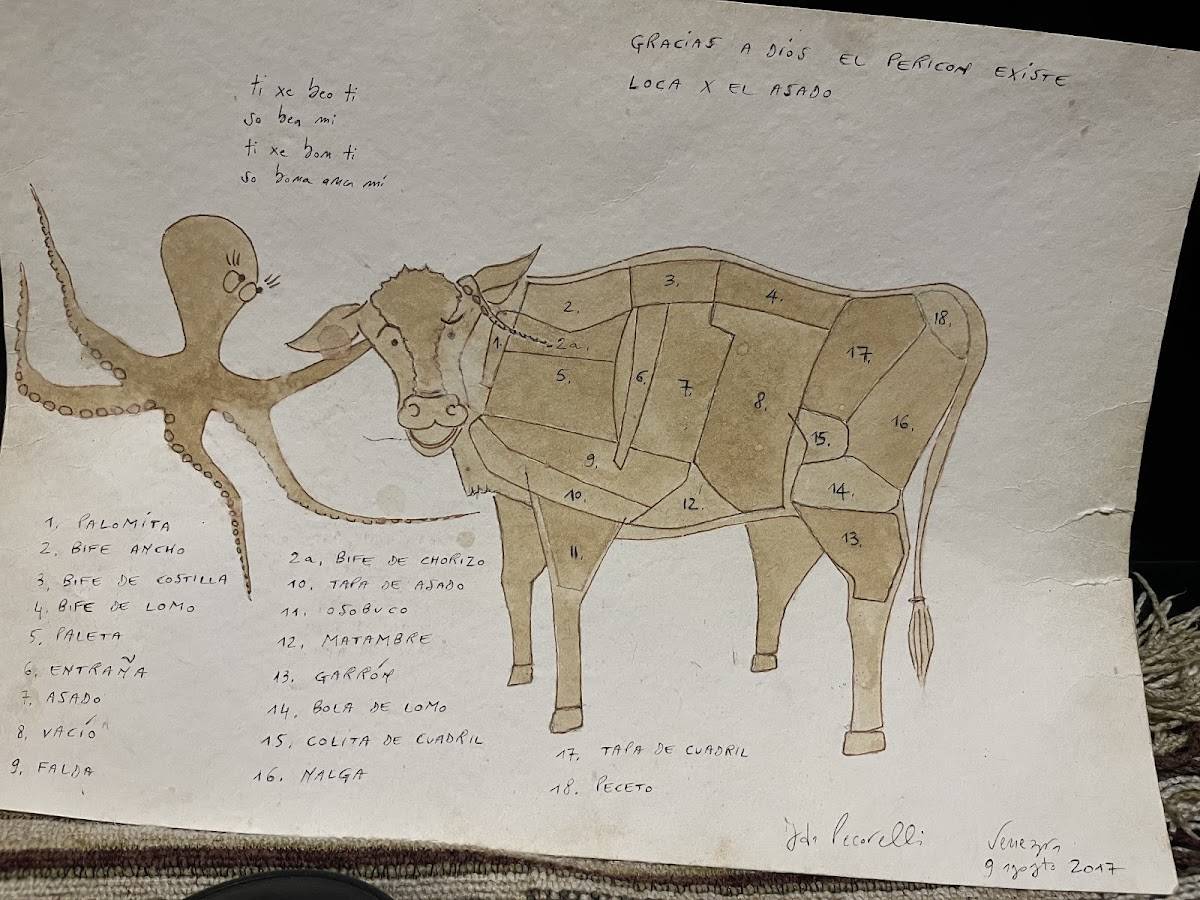 GRACIAS A DIOS EL PERICON EXISTE
LOCA X EL ASADO
ti xe beo ti
so bea mi
ti xe bon ti
so bona anca mi
1.
2.
2a.
3.
4.
5.
6.
7.
8.
9.
10.
11.
12.
13.
14.
15.
16.
17.
18.
1. PALOMITA
2. BIFE ANCHO
3. BIFE DE COSTILLA
4. BIFE DE LOMO
5. PALETA
6. ENTRAÑA
7. ASADO
8. VACÍO
9. FALDA
2a. BIFE DE CHORIZO
10. TAPA DE ASADO
11. OSOBUCO
12. MATAMBRE
13. GARRÓN
14. BOLA DE LOMO
15. COLITA DE CUADRIL
16. NALGA
17. TAPA DE CUADRIL
18. PECETO
Pecorelli
Venezia
9 agosto 2017